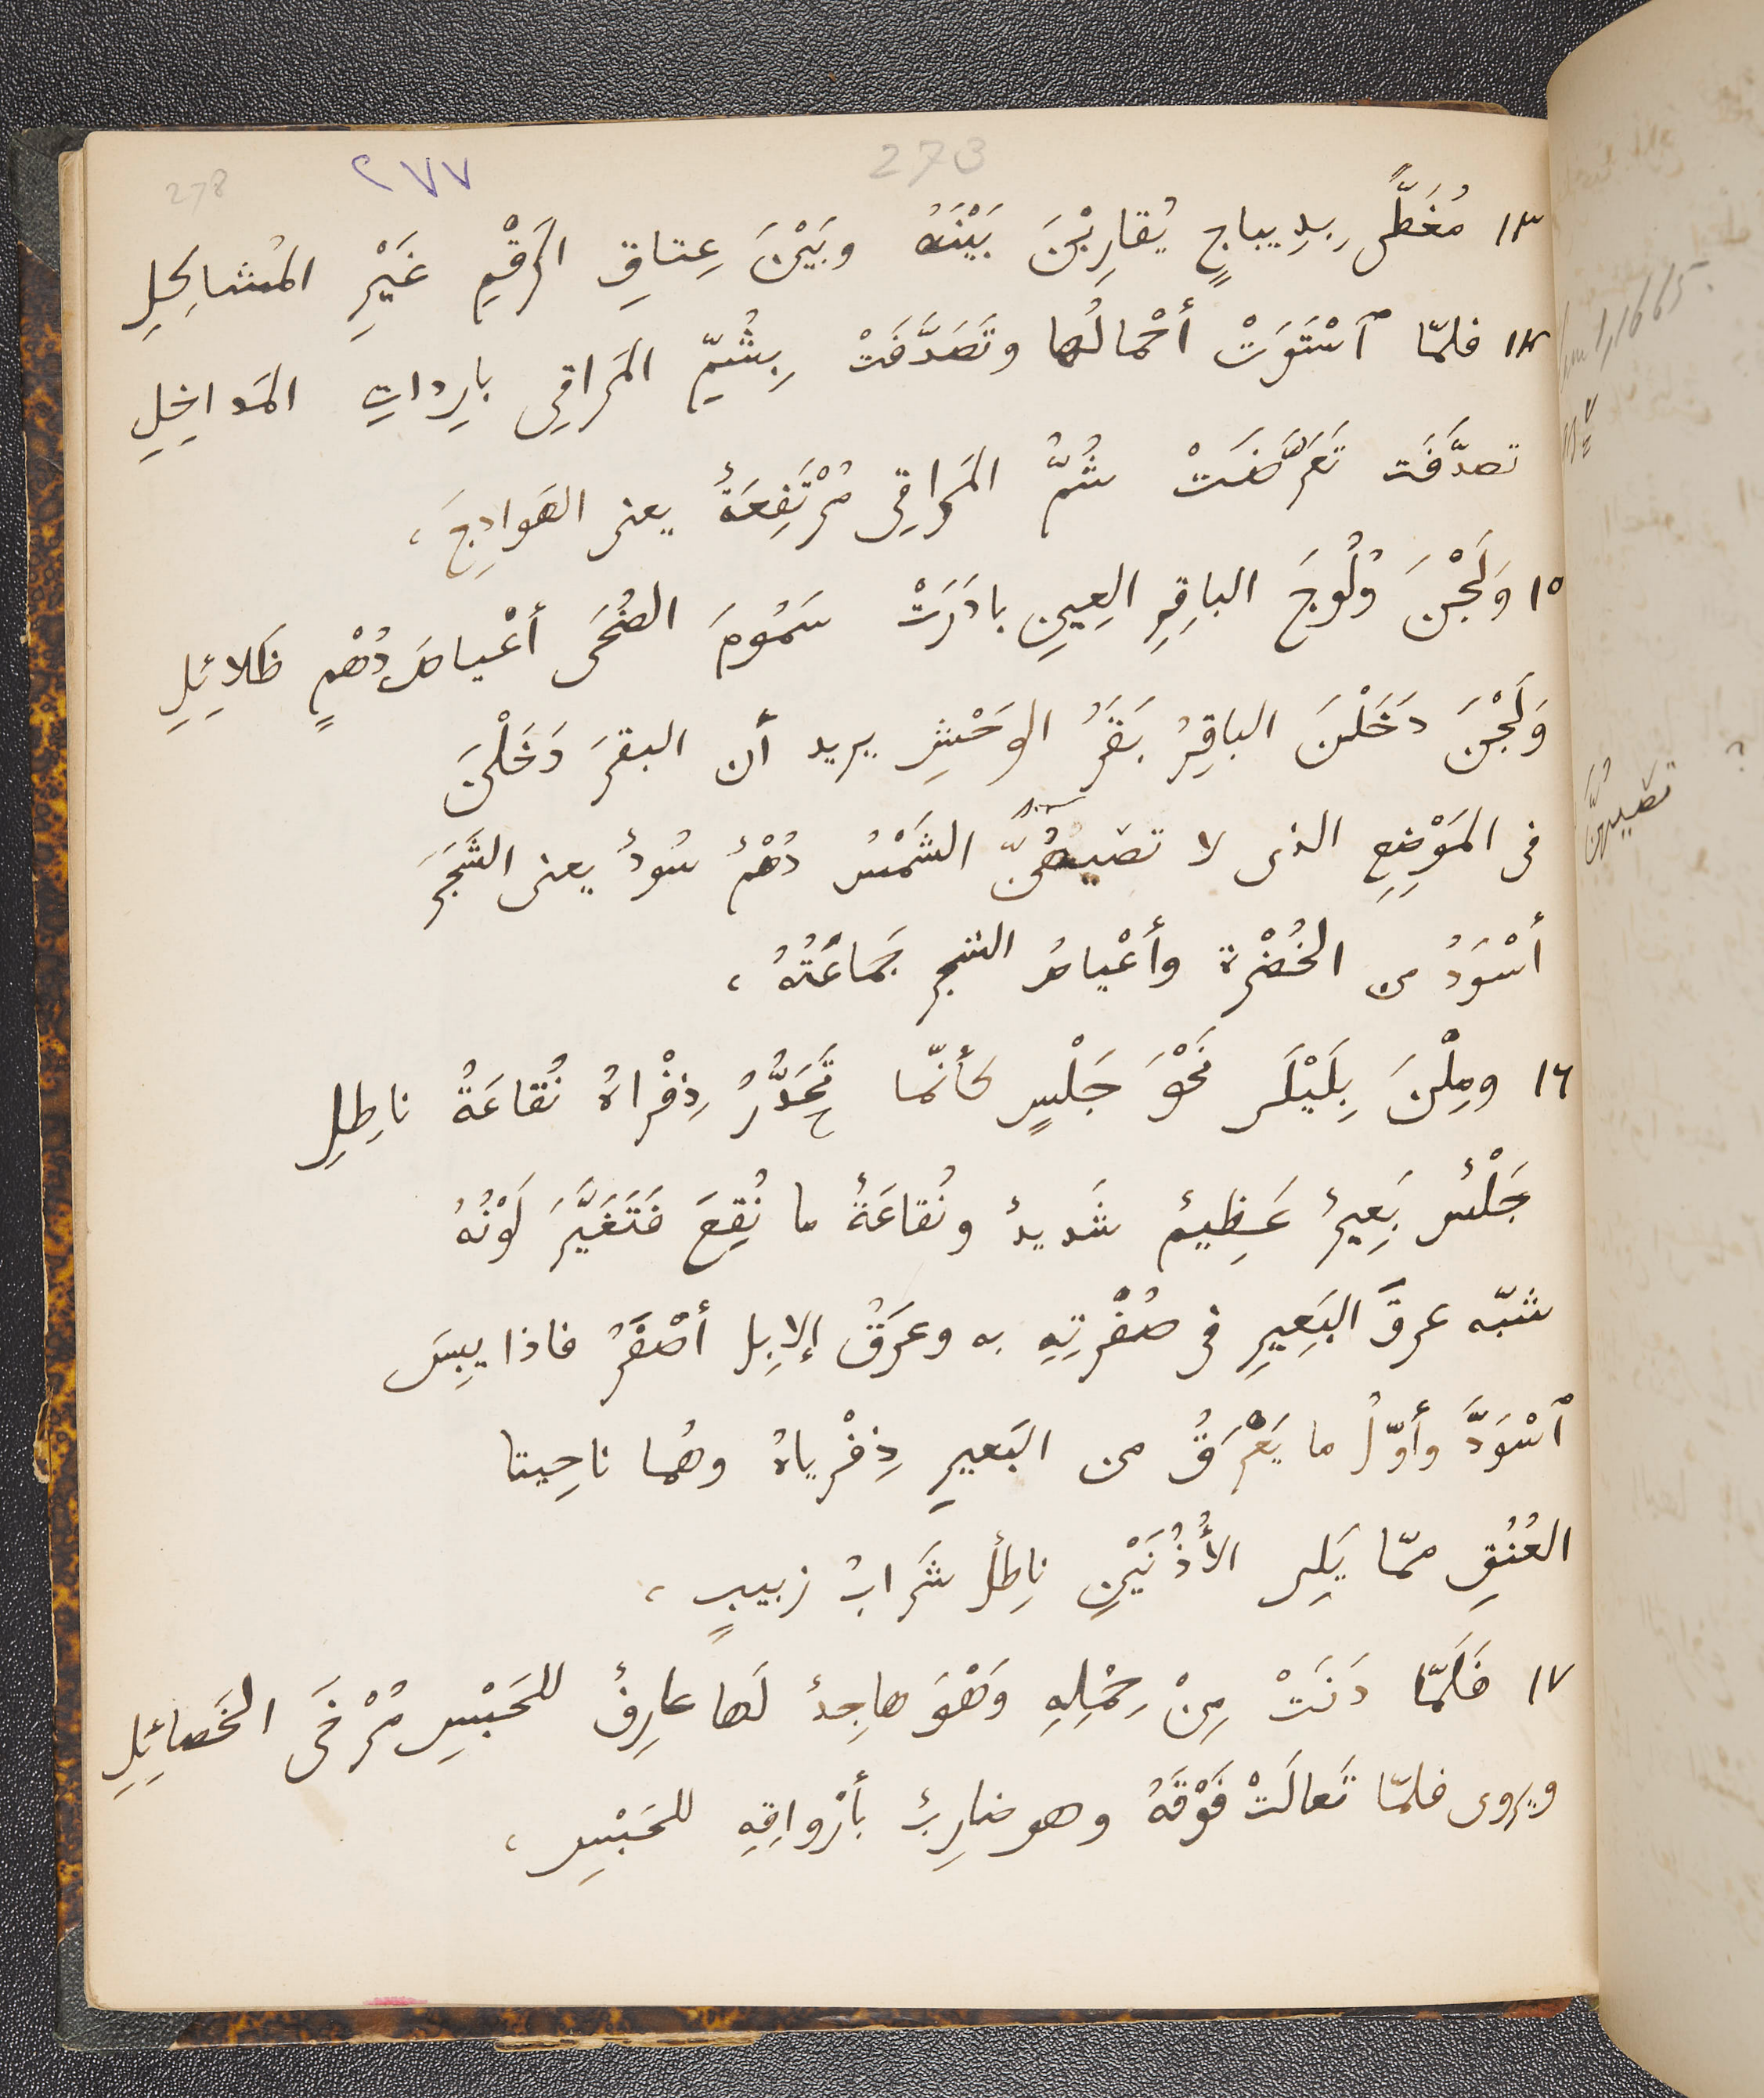 273
278
٢٧٧
١٣ مُغَطًّى بِدِيباجٍ يُقارِبْنَ بَيْنَهُ وبَيْنَ عِتاقِ الرَقْمِ غَيْرِ المُشاكِلِ
١٤ فلمّا ٱسْتَوَتْ أحْمالُها وتَصَدَّفَتْ بِشُمِّ المَراقِى بارِداتِ المَداخِلِ
تصدَّفَت تَعَرَّضَتْ شُمُّ المَراقِى مُرْتَفِعَةٌ يعنى الهَوادِجَ ،
١٥ وَلَجْنَ وُلُوجَ الباقِرِ العِينِ بادَرَتْ سَمُومَ الضُحَى أعْياصَ دُهْمٍ ظَلائِلِ
وَلَجْنَ دَخَلْنَ الباقِرُ بَقَرُ الوَحْشِ يريد أن البقرَ دَخَلْنَ
فى المَوْضِعِ الذى لا تصَيبهُنَّ الشَمْسُ دُهْمٌ سُودٌ يعنى الشَجَرَ
أسْوَدُ من الخُضْرة وأعْياصُ الشجر جَماعَتُهُ ،
١٦ ومِلْنَ بِلَيْلَى نَحْوَ جَلْسٍ كأنّما تَحَدُّرُ ذِفْراهُ نُقاعَةُ ناطِلِ
جَلْسٌ بَعِيرٌ عَظِيمٌ شَديدٌ ونُقاعَةٌ ما نُقِعَ فَتَغَيَّرَ لَوْنُهُ
شبّه عرقَ البَعِيرِ فى صُفْرتِهِ به وعرَقُ الإبِل أصْفَرُ فاذا يبِسَ
ٱسْوَدَّ وأوّلُ ما يَعْرَقُ من البَعيرِ ذِفْرياهُ وهُما ناحِيتا
العُنُقِ ممّا يَلِى الأُذُنَيْنِ ناطِلٌ شَرابُ زبيبٍ ،
١٧ فَلَمّا دَنَتْ مِنْ حِمْلِهِ وَهْوَ هاجِدٌ لَها عارِفٌ للحَبْسِ مُرْخَى الخَصائِلِ
ويروى فلمّا تَعالَتْ فَوْقَهُ وهو ضارِبٌ بأرْواقِهِ للحَبْسِ ،